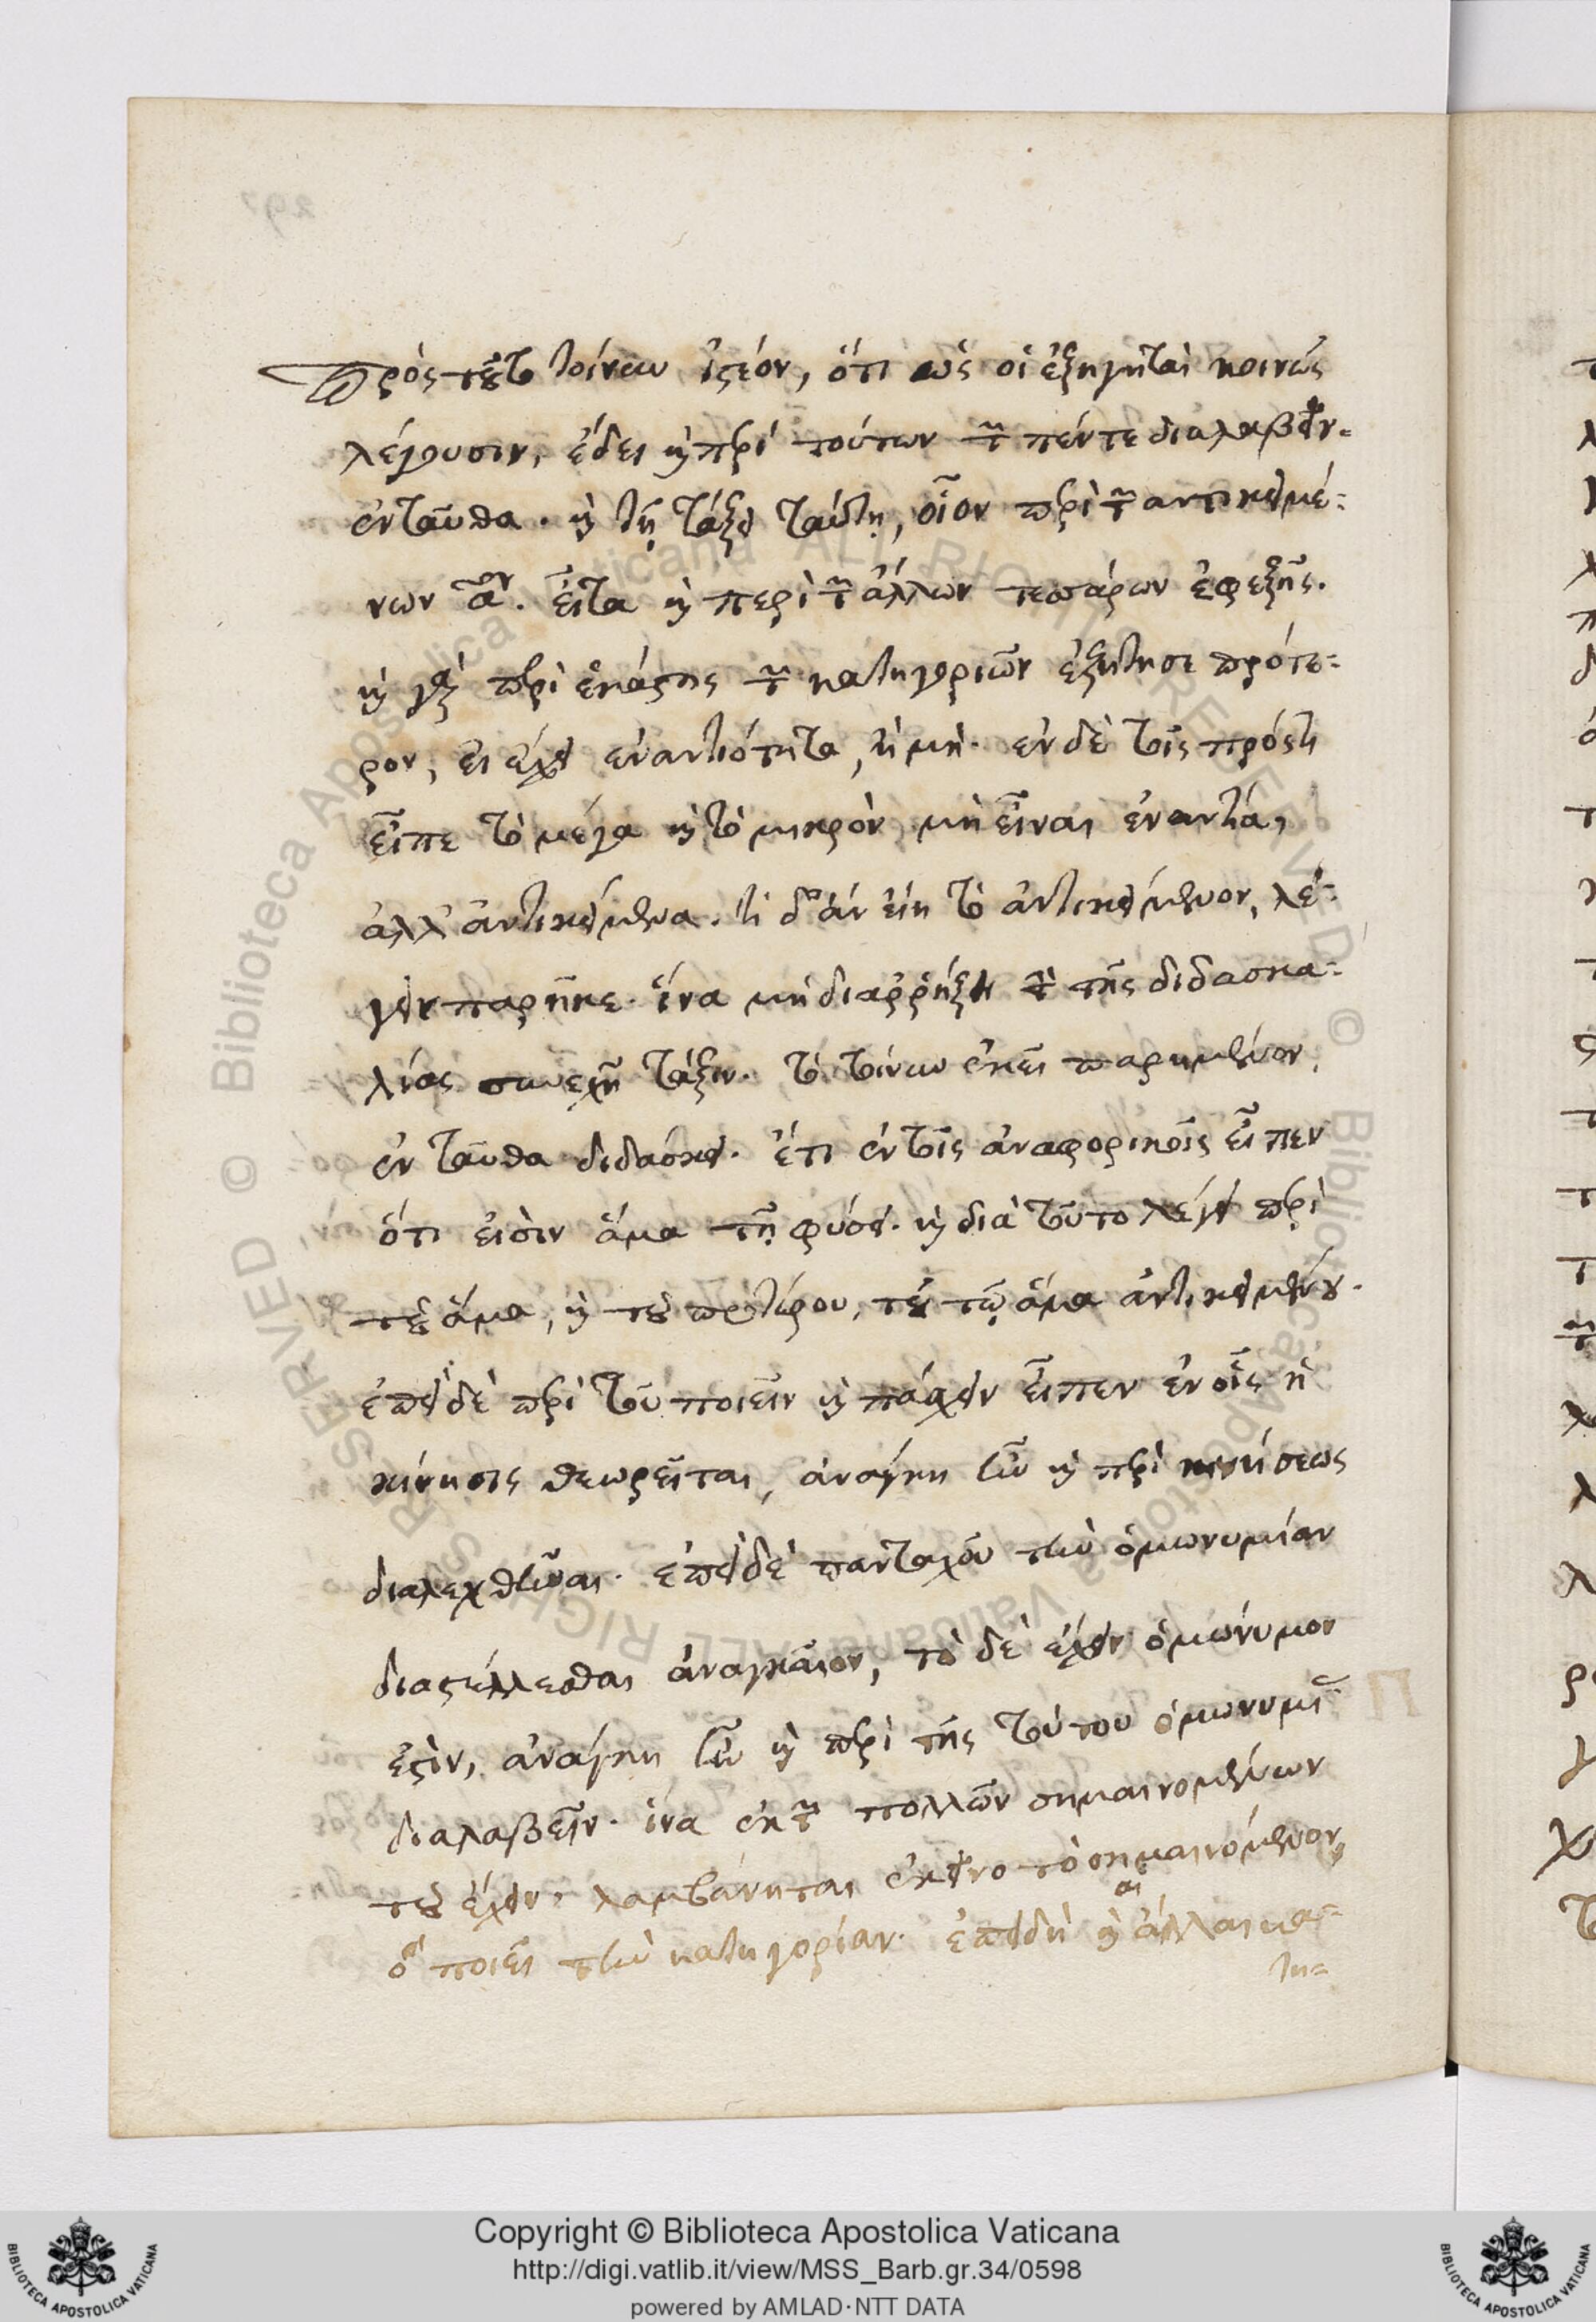 Πρὸς τοῦτο τοίνυν ἰστέον, ὅτι ὡς οἱ ἐξηγηταὶ κοινῶς
λέγουσιν, ἔδει καὶ περὶ τούτων τῶν πέντε διαλαβεῖν
ἐνταῦθα. καὶ τῇ τάξει ταύτῃ, οἷον περὶ τῶν ἀντικειμέ=
νων αον. εἶτα καὶ περὶ τῶν ἄλλων τεσσάρων ἐφεξῆς.
καὶ γὰρ περὶ ἑκάστης τῶν κατηγοριῶν ἐζήτησε πρότε=
ρον, εἰ ἔχει ἐναντιότητα, ἢ μή. ἐν δὲ τοῖς πρόστι
εἶπε τὸ μέγα καὶ τὸ μικρὸν μὴ εἶναι ἐναντία,
ἀλλ' ἀντικείμενα. τί δ' ἂν εἴη τὸ ἀντικείμενον, λέ=
γειν παρῆκε. ἵνα μὴ διαῤῥήξῃ τὴν τῆς διδασκα=
λίας συνεχῆ τάξιν. τὸ τοίνυν ἐκεῖ παρειμένον,
ἐνταῦθα διδάσκει. ἔτι ἐν τοῖς ἀναφορικοῖς εἶπεν
ὅτι εἰσὶν ἅμα τῇ φύσει. καὶ διὰ τοῦτο λέγει περὶ
τοῦ ἅμα, καὶ τοῦ προτέρου, τοῦ τῷ ἅμα ἀντικειμένου.
ἐπεὶ δὲ περὶ τοῦ ποιεῖν καὶ πάσχειν εἶπεν ἐν οἷς ἡ
κίνησις θεωρεῖται, ἀνάγκη ἦν καὶ περὶ κινήσεως
διαλεχθῆναι. ἐπεὶ δὲ πανταχοῦ τὴν ὁμωνυμίαν
διαστέλλεσθαι ἀναγκαῖον, τὸ δὲ ἔχειν ὁμώνυμον
ἐστὶν, ἀνάγκη ἦν καὶ περὶ τῆς τούτου ὁμωνυμίας
διαλαβεῖν. ἵνα ἐκ τῶν πολλῶν σημαινομένων
τοῦ ἔχειν, λαμβάνηται ἐκεῖνο τὸ σημαινόμενον,
ὃ ποιεῖ τὴν κατηγορίαν. ἐπειδὴ καὶ αἱ ἄλλαι κα=
τη=
Copyright © Biblioteca Apostolica Vaticana
http://digi.vatlib.it/view/MSS_Barb.gr.34/0598
powered by AMLAD·NTT DATA